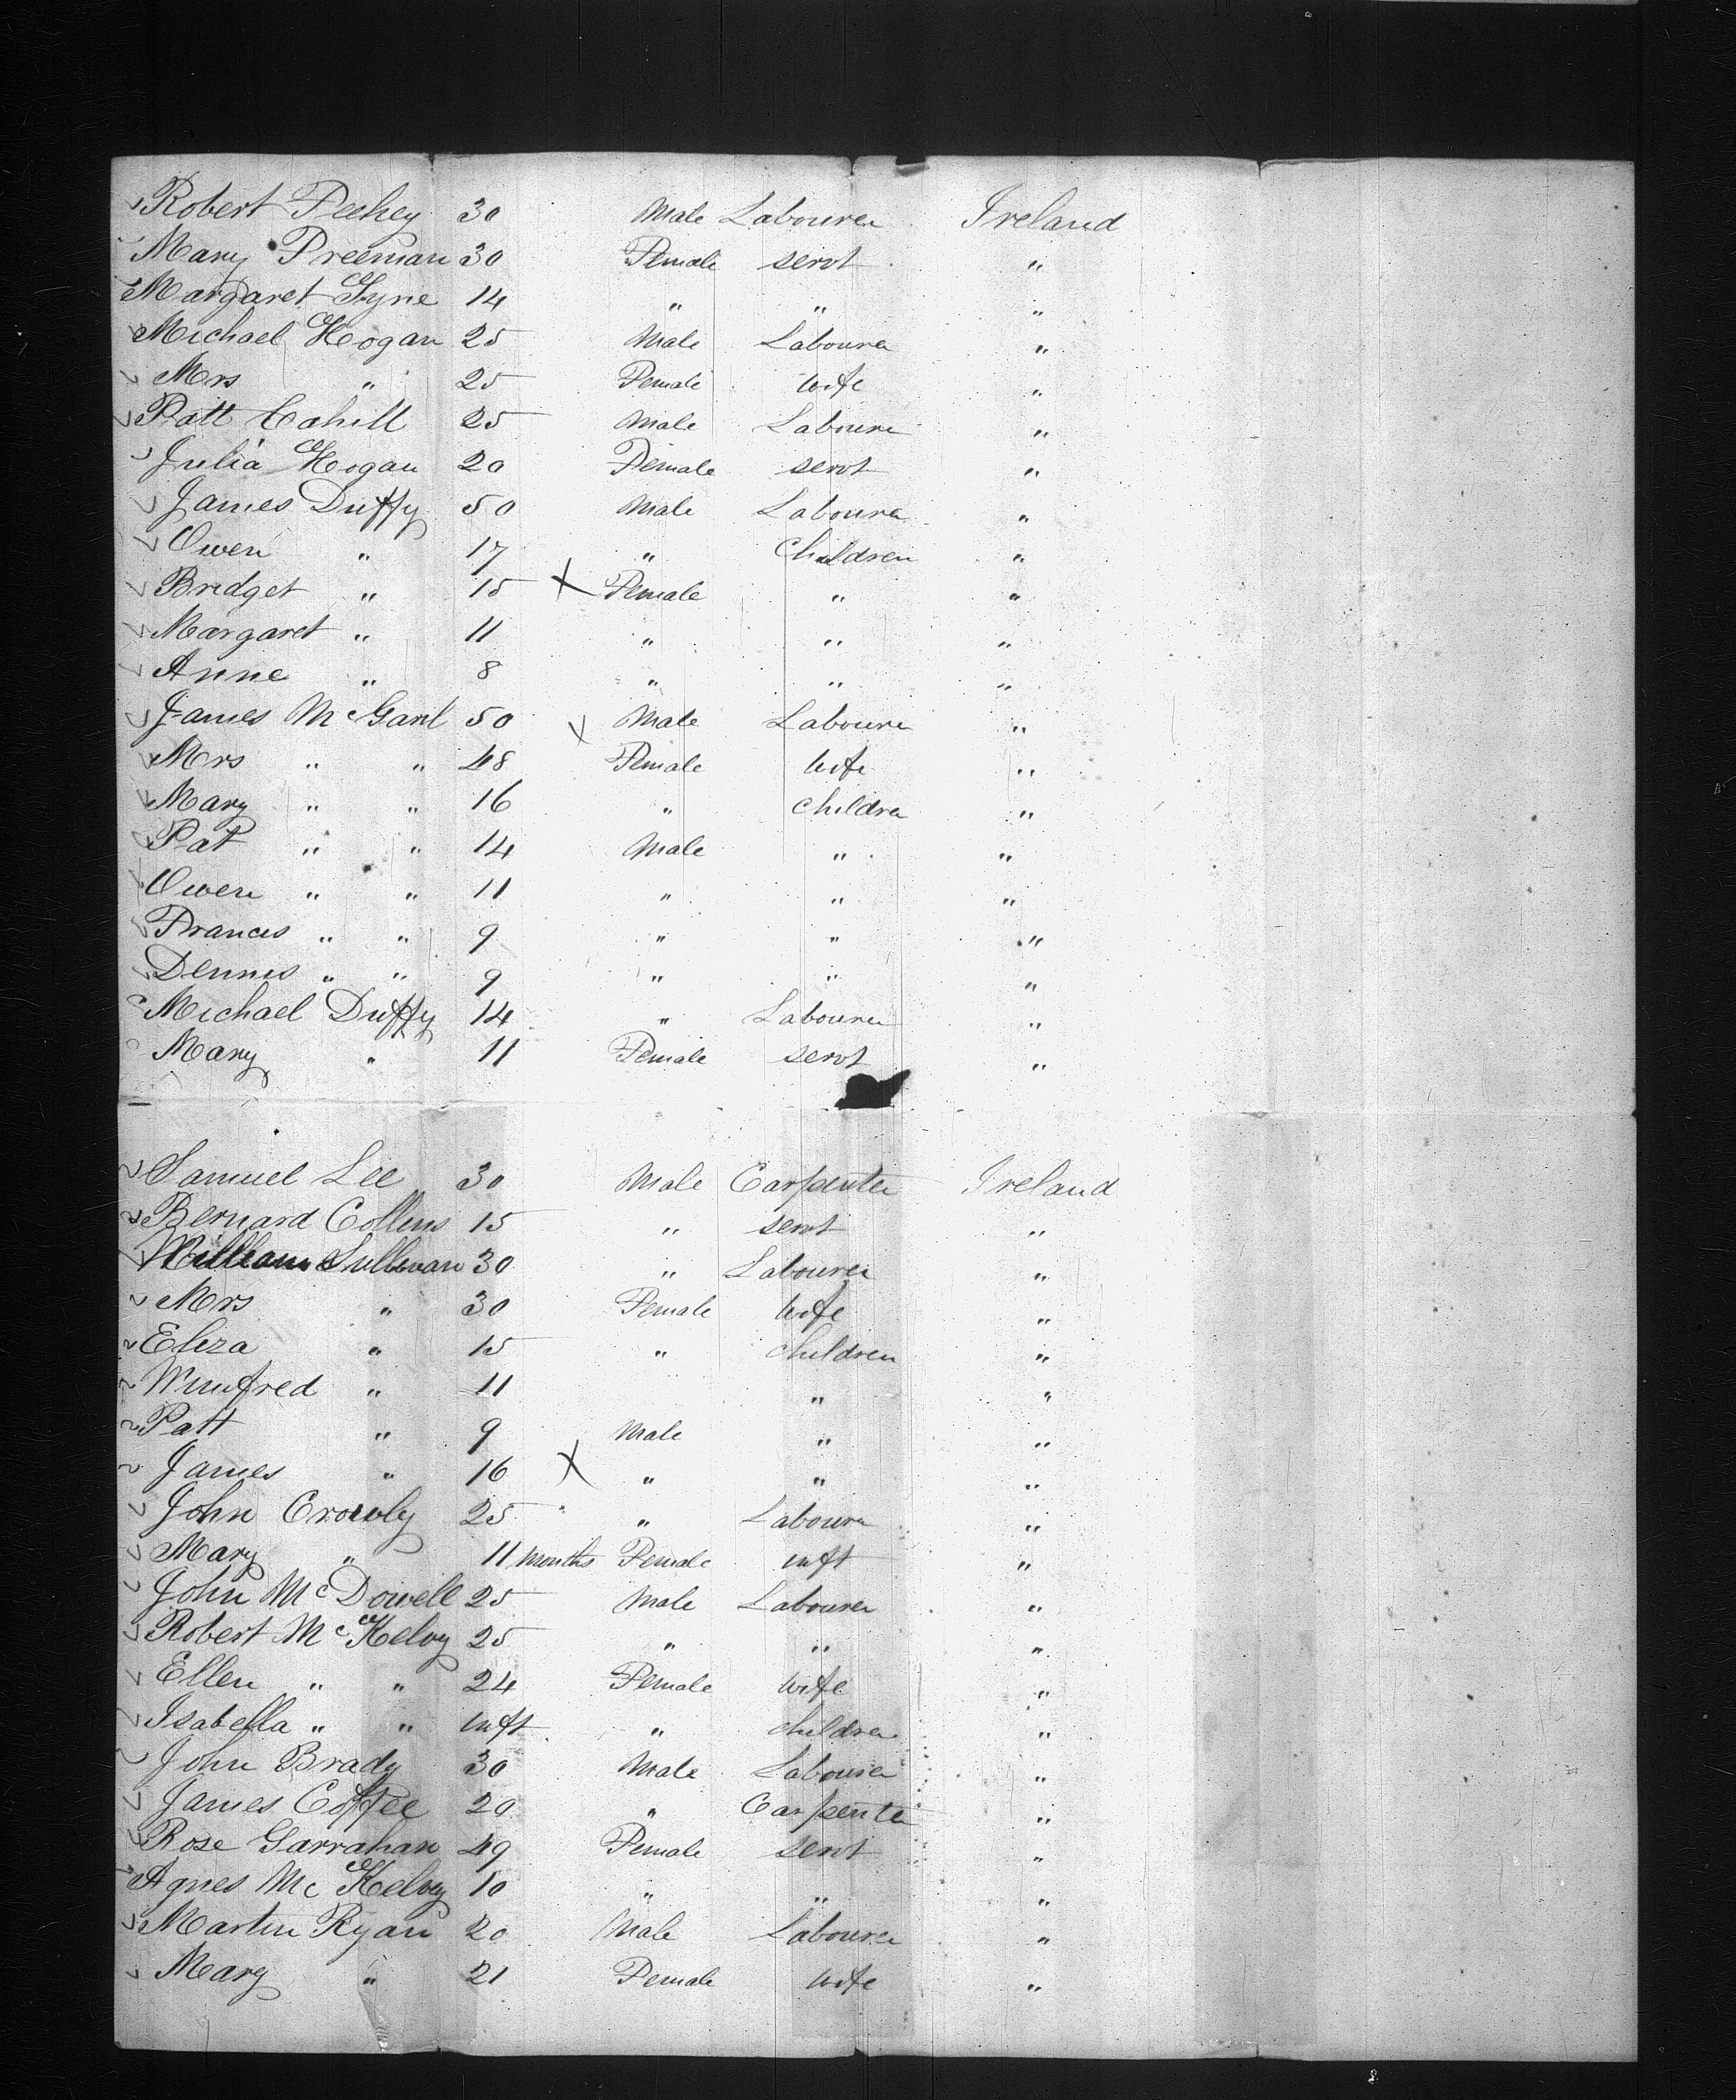 Robert Feehey 30 Male Labourer Ireland
Mary Freeman 30 Female servt "
Margaret Lyne 14 " " "
Michael Hogan 25 Male Labourer "
Mrs " 25 Female wife "
Patt Cahill 25 Male Labourer "
Julia Hogan 20 Female servt "
James Duffy 50 Male Labourer "
Owen " 17 " Children "
Bridget " 15 X Female " "
Margaret " 11 " " "
Anne " 8 " " "
James McGarl 50 X Male Labourer "
Mrs " " 48 Female wife "
Mary " " 16 " children "
Pat " " 14 Male " "
Owen " " 11 " " "
Frances " " 9 " " "
Dennis " " 9 " " "
Michael Duffy 14 " Labourer "
Mary " 11 Female servt "
Samuel Lee 30 Male Carpenter Ireland
Bernard Collins 15 " servt "
William Sullivan 30 " Labourer "
Mrs " 30 Female wife "
Eliza " 15 " children "
Winnifred " 11 " " "
Patt " 9 Male " "
James " 16 X " " "
John Crowly 25 " Labourer "
Mary " 11 months Female inft "
John McDowell 25 Male Labourer "
Robert McKelvy 25 " " "
Ellen " " 24 Female wife "
Isabella " " inft " children "
John Brady 30 Male Labourer "
James Coffee 20 " Carpenter "
Rose Garrahan 49 Female servt "
Agnes McKelvy 10 " " "
Martin Ryan 20 Male Labourer "
Mary " 21 Female wife "